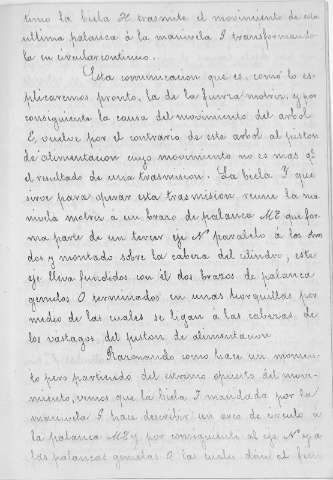 timo la biela H trasmite el movimiento de esta
ultima palanca á la manivela I transformando
la en circular continuo.
Esta comunicacion que es, como lo es-
plicaremos pronto, la de la fuerza motriz, y por
consiguiente la causa del movimiento del arbol
E, vuelve por el contrario de este arbol al piston
de alimentacion cuyo movimiento no es mas qe
el resultado de una trasmision. La biela I que
sirve para operar esta trasmision reune la ma
nivela motriz á un brazo de palanca M que for
ma parte de un tercer eje N paralelo á los
dos y montado sobre la cabeza del cilindro, este
eje lleva fundidos con él dos brazos de palanca
gemelos O terminados en unas horquillas por
medio de las cuales se ligan á las cabezas de
los vastagos del piston de alimentacion
Razonando como hace un momen-
to pero partiendo del estremo opuesto del movi-
miento, vemos que la biela I mandada por la
manivela I hace describir un arco de circulo á
la palanca M y por consiguiente al eje N y á
las palancas gemelas O las cuales dan al